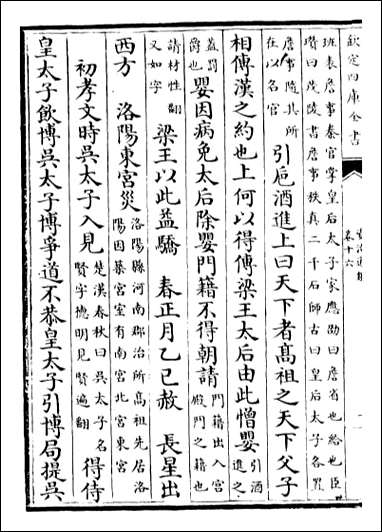 欽定四庫全書
資治通鑑
卷十六
班表詹事秦官掌皇后太子家應劭曰詹省也給也臣
瓚曰茂陵書詹事秩真二千石師古曰皇后太子各置
詹事隨其所
在以名官
引巵酒進上曰天下者髙祖之天下父子
相傳漢之約也上何以得傳梁王太后由此憎嬰
引酒
進之
蓋罰
爵也
嬰因病免太后除嬰門籍不得朝請
門籍出入宫
殿門之籍也
請材性翻
又如字
梁王以此益驕 春正月乙巳赦 長星出
西方 洛陽東宫災
洛陽縣河南郡治所髙祖先居洛
陽因築宫室有南宫北宫東宫
初孝文時吳太子入見
楚漢春秋曰吳太子名
賢字徳明見賢遍翻
得侍
皇太子飲博吳太子博爭道不恭皇太子引博局提吳